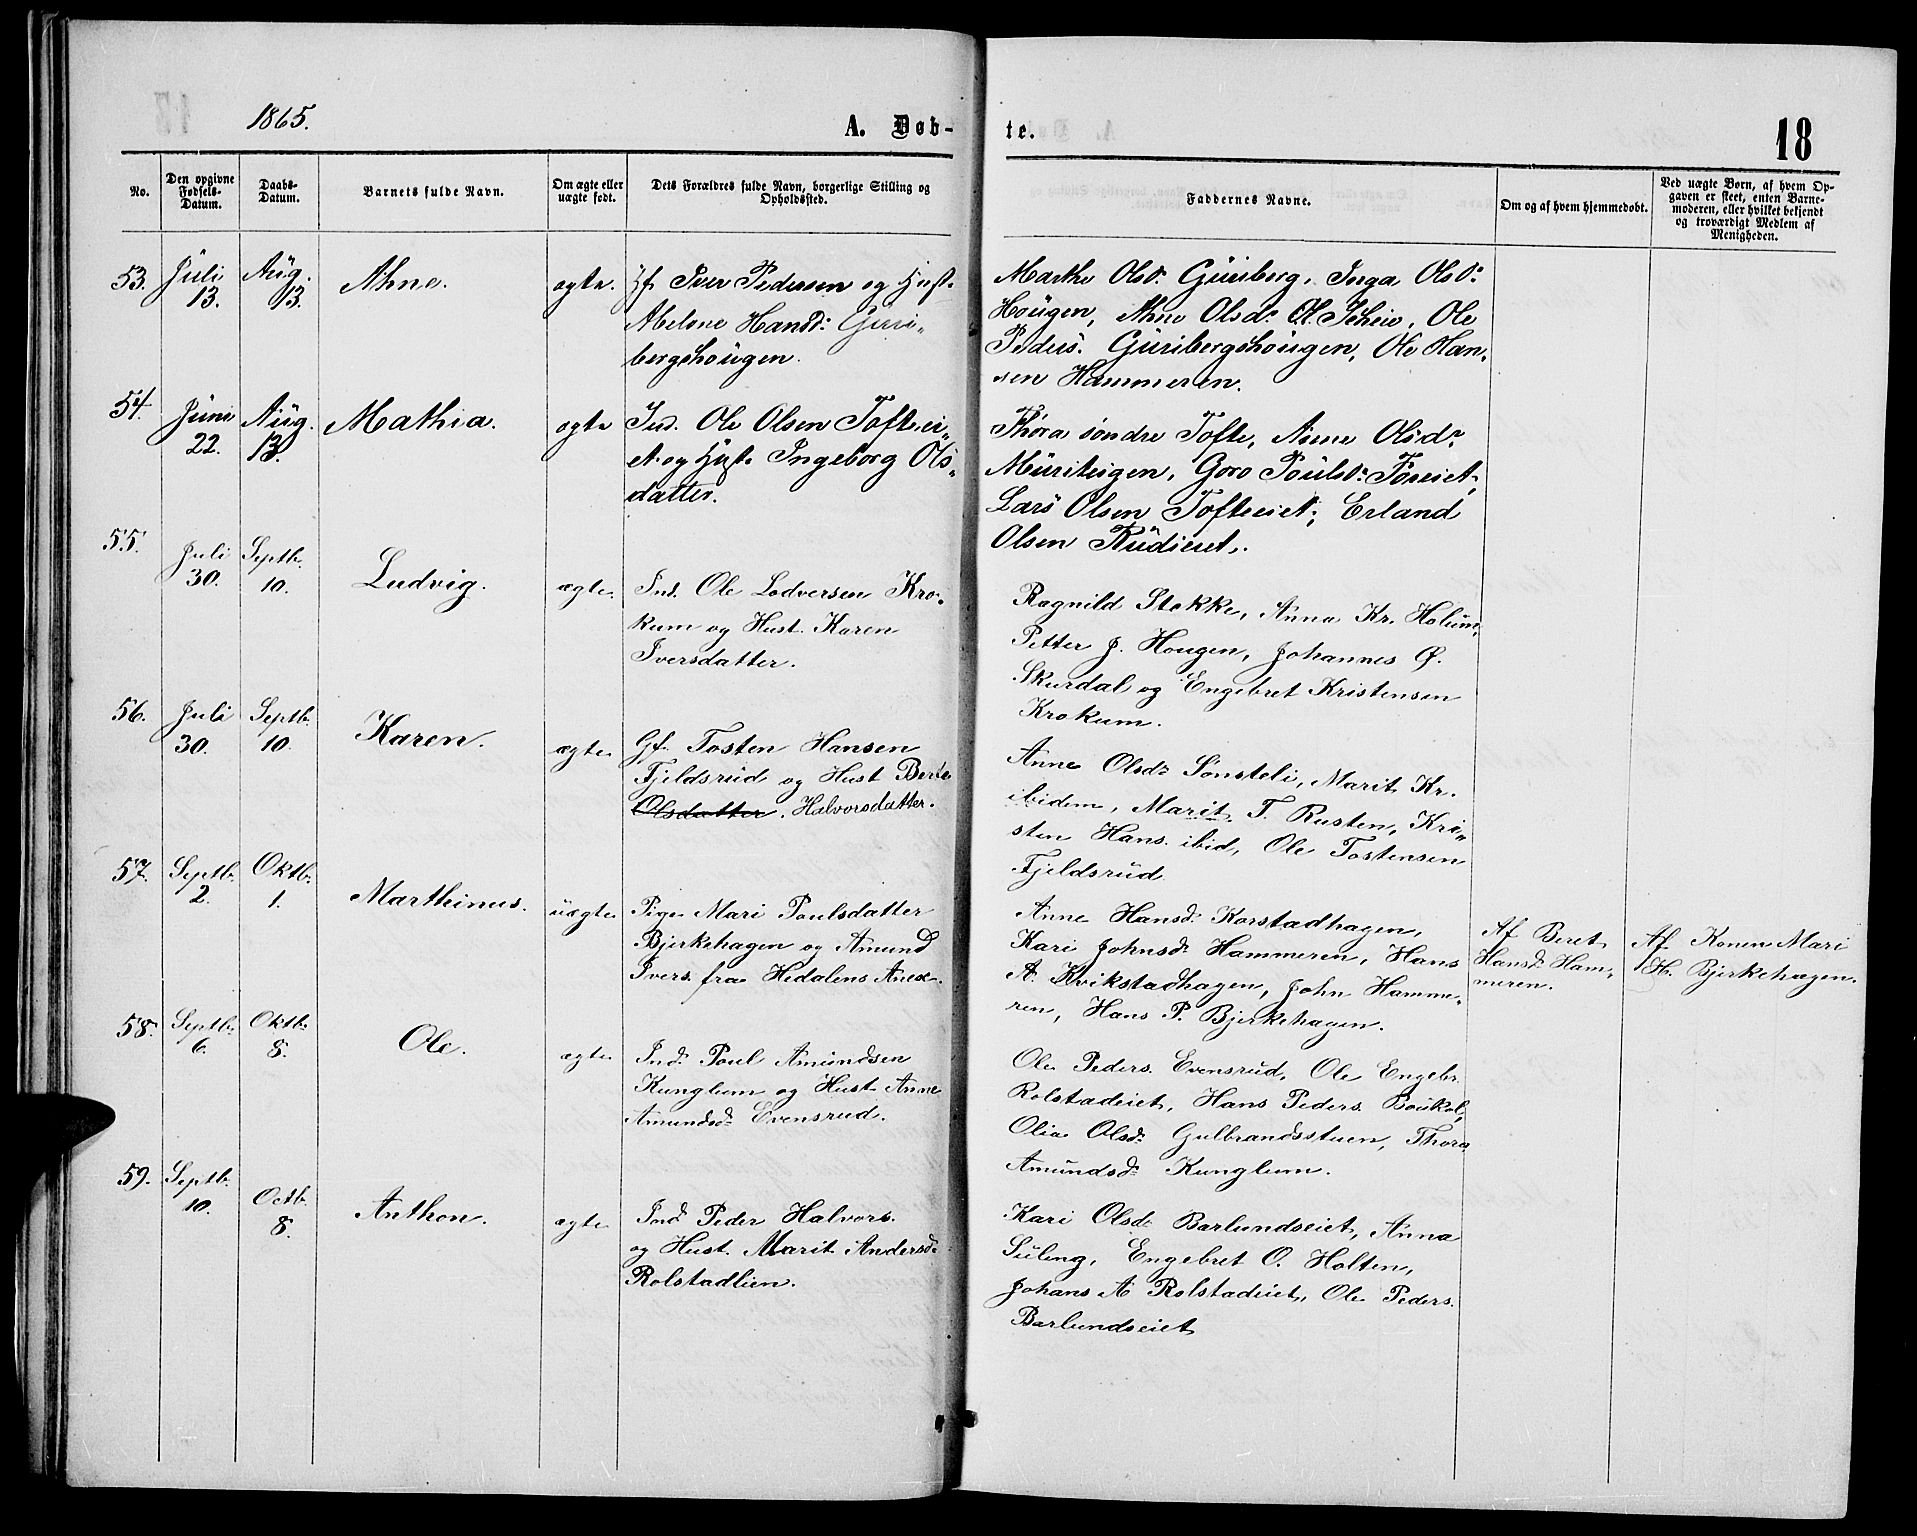 1865.
A. Døb-
te.
18
No.
Den opgivne
Fødsels-
Datum.
Daabs-
Datum.
Barnets fulde Navn.
Om ægte eller
uægte født.
Dets Forældres fulde Navn, borgerlige Stilling og
Opholdssted.
Faddernes Navne.
Om og af hvem hjemmedøbt.
Ved uægte Børn, af hvem Op-
gaven er skeet, enten Barne-
moderen, eller hvilket bekjendt
og troværdigt Medlem af
Menigheden.
53. Juli 13. Aug. 13. Ahne. ægte.
Iver Pedersen og Hust.
Abelone Hansd: Guri„
bergshougen.
Marthe Olsd: Guriberg, Inga Olsd:
Hougen, Ahne Olsd:
Peders. Guribergshougen, Ole Han„
sen Hammeren.
54. Juni 22. Aug. 13. Mathia. ægte
Ind. Ole Olsen Toftei„
et og Hust. Ingeborg Ols„
datter.
Thora søndre Tofte, Anne Olsd:
Goro Poulsd:
Lars Olsen Tofteeiet, Erland
Olsen Rudieiet.
55. Juli 30. Septb. 10. Ludvig. ægte.
Ind. Ole Lodversen Kro-
kum og Hust. Karen
Iversdatter.
Ragnild Stokke, Anna Kr. Holum,
Petter J. Hougen, Johannes Ø.
Skurdal og Engebret Kristensen
Krokum.
56. Juli 30. Septb. 10. Karen. ægte.
Gf. Tosten Hansen
Fjeldsrud og Hust. Berte
Olsdatter. Halvorsdatter.
Anne Olsd: Sønsteli, Marit Kr.
ibidem, Marit T. Rusten, Kri„
sten Hans. ibid, Ole Tostensen
Fjeldsrud
57. Septb. 2. Oktb. 1. Martheinus. uægte
Pige Mari Poulsdatter
Bjerkehagen og Amund
Ivers. fra Hedalens Anex.
Anne Hansd: Korstadhagen,
Kari Johnsd: Hammeren, Hans
A. Kvikstadhagen, John Hamme„
ren, Hans P. Bjerkehagen.
Af Beret
Hansd: Ham„
meren.
Af Konen Mari
H. Bjerkehagen.
58. Septb. 6. Oktb. 8. Ole. ægte
Ind. Poul Amundsen
Kunglum og Hust. Anne
Amundsd: Evensrud.
Ole Peders. Evensrud, Ole Engebr.
Rolstadeiet, Hans Peders. Boukol,
Olia Olsd: Gulbrandsstuen, Thora
Amundsd: Kunglum.
59. Septb. 10. Octb. 8. Anthon. ægte
Ind. Peder Halvors.
og Hust. Marit Andersd:
Rolstadlien.
Kari Olsd: Barlundseiet, Anna
Suleng, Engebret O. Holten,
Johans A Rolstadeiet, Ole Peders.
Barlundseiet